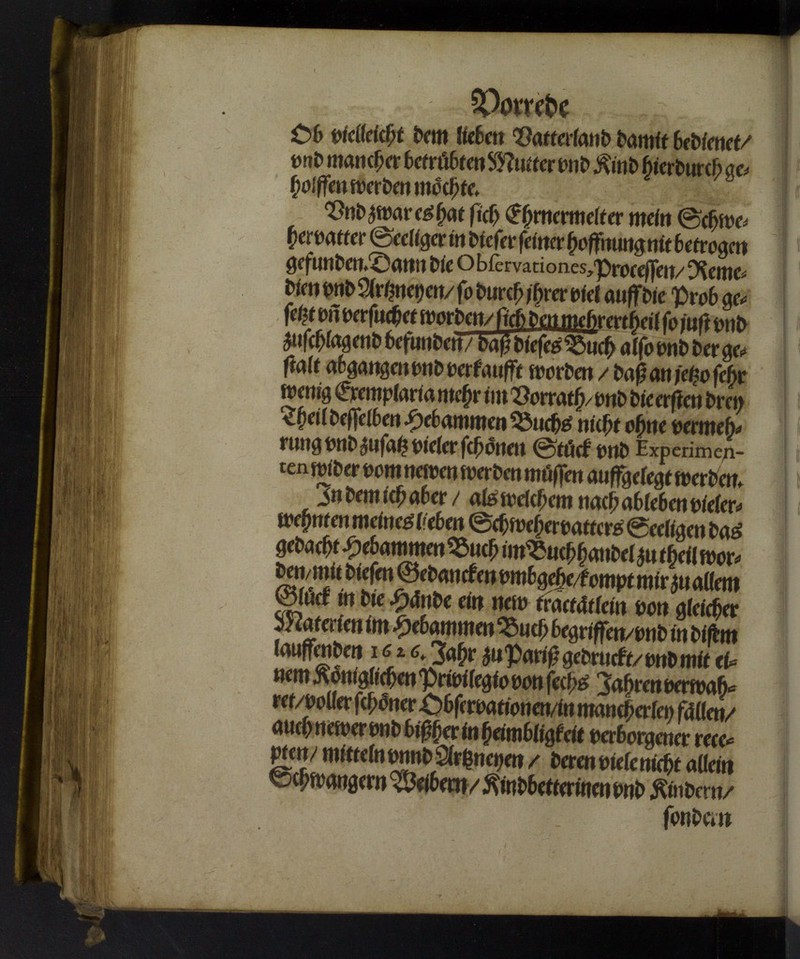 Vorrede
Ob vielleicht dem lieben Vatterland damit bedienet/
vnd mancher betrübten Mutter vnd Kind hierdurch ge-
holffen werden möchte.
Vnd zwar es hat sich Ehrnermelter mein Schwe-
hervatter Seeliger in dieser seiner hoffnung nit betrogen
gefunden. Dann die Observationes, Processen/ Reme-
dien vnd Artzneyen/ so durch jhrer viel auff die Prob ge-
setzt vñ versuchet worden/ sich den mehrertheil so just vnd
zuschlagend befunden/ daß dieses Buch also vnd der ge-
stalt abgangen vnd verkaufft worden / daß an jetzo sehr
wenig Exemplaria mehr im Vorrath/ vnd die ersten drey
Theil desselben Hebammen Buchs nicht ohne vermeh-
rung vnd zusatz vieler schönen Stück vnd Experimen-
ten wider vom newen werden müssen auffgelegt werden.
In dem ich aber / als welchem nach ableben vieler-
wehnten meines lieben Schwehervatters Seeligen das
gedacht Hebammen Buch im Buchhandel zu theil wor-
den/ mit diesen Gedancken vmbgehe/ kompt mir zu allem
Glück in die Hände ein new tractätlein von gleicher
Materien im Hebammen Buch begriffen/ vnd in disem
lauffenden 1626. Jahr zu Pariß gedruckt/ vnd mit ei-
nem Königlichen Privilegio von sechs Jahren verwah-
ret/ voller schöner Observationen/ in mancherley fällen/
auch newer vnd bißher in heimbligkeit verborgener rece-
pten/ mitteln vnnd Artzneyen / deren viele nicht allein
Schwangern Weibern/ Kindbetterinen vnd Kindern/
sondern